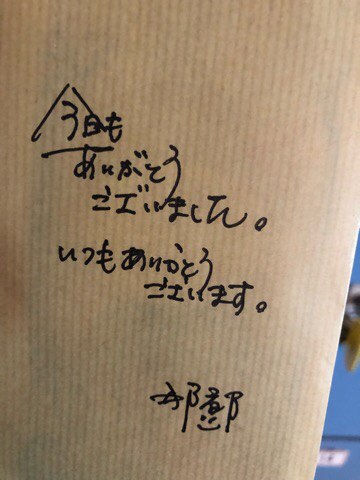 今日も
ありがとう
ございました。
いつもありがとう
ございます。